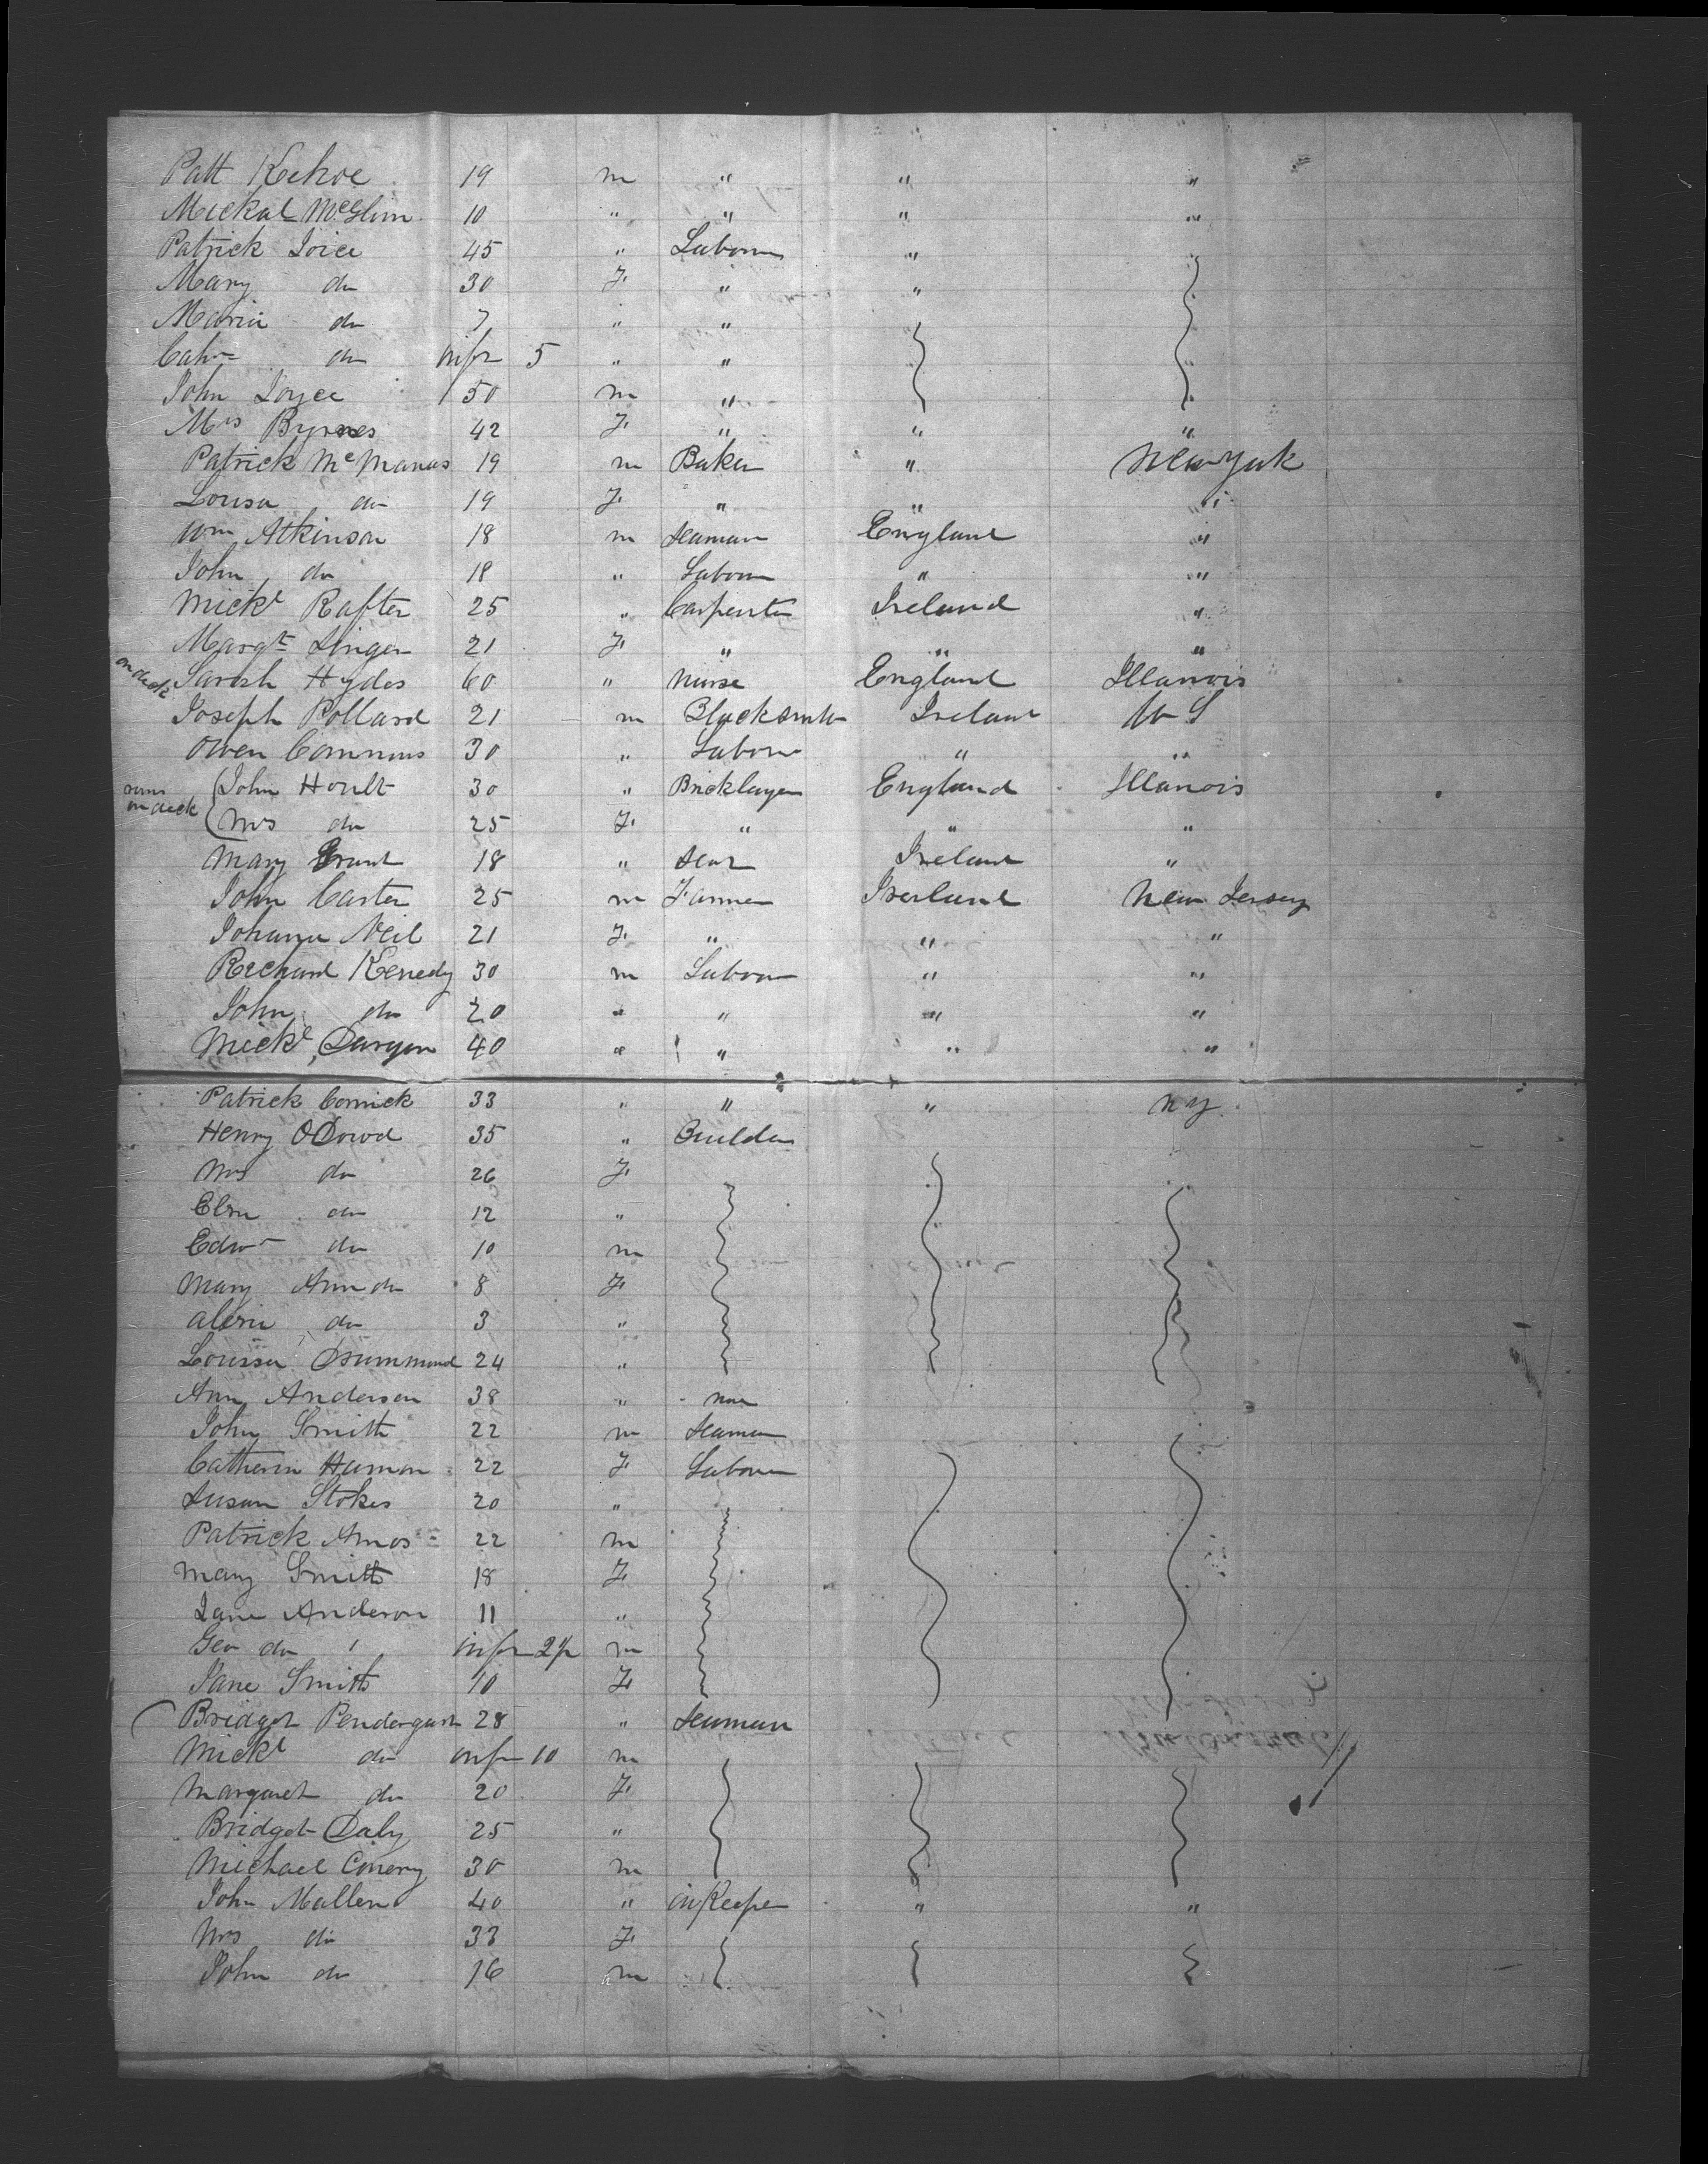 Patt Kehoe 19 m " " "
Mickal McGlinn 10 " " " "
Patrick Joice 45 " Labour " "
Mary do 30 F " "
Maria do 7 " "
Cathe do infr 5 " "
John Joyce 50 m "
Mrs Byrnes 42 F " " "
Patrick McManus 19 m Baker " New York
Louisa do 19 F " " "
Wm Atkinson 18 m Seaman England "
John do 18 " Labour " "
Mickl Rafter 25 " Carpenter Ireland "
Margt Singer 21 F " " "
on deck Sarah Hydes 60 " Nurse England Illanois
Joseph Pollard 21 m Blacksmith Ireland U S
Owen Commons 30 " Labour " "
on deck John Hoult 30 " Bricklayer England Illanois
Mrs do 25 F " " "
Mary Grant 18 " Ireland "
John Carter 25 m Farmer Irerland New Jersey
Johanna Neil 21 F " " "
Richard Kenedy 30 m Labour " "
John do 20 " " " "
Mickl Durgan 40 " " " "
Patrick Cormick 33 " " " N Y
Henry ODowd 35 " Builder
Mrs do 26 F
do 12 "
Edwd do 10 m
Mary Ann do 8 F
do 3 "
Louisa Drummond 24 "
Ann Anderson 38 "
John Smith 22 m Seaman
Catherin Hamon 22 F Labour
Susan Stokes 20 "
Patrick Amos 22 m
Mary Smith 18 F
Jane Anderon 11 "
Geo do infr m
Jane Smith 10 F
Bridget Pendergast 28 " Seaman
Mickl do infr 10 m
Margaret do 20 F
Bridget Daly 25 "
Michael Conery 30 m
John Mallen 40 " inKeeper " "
Mrs do 33 F
John do 16 m